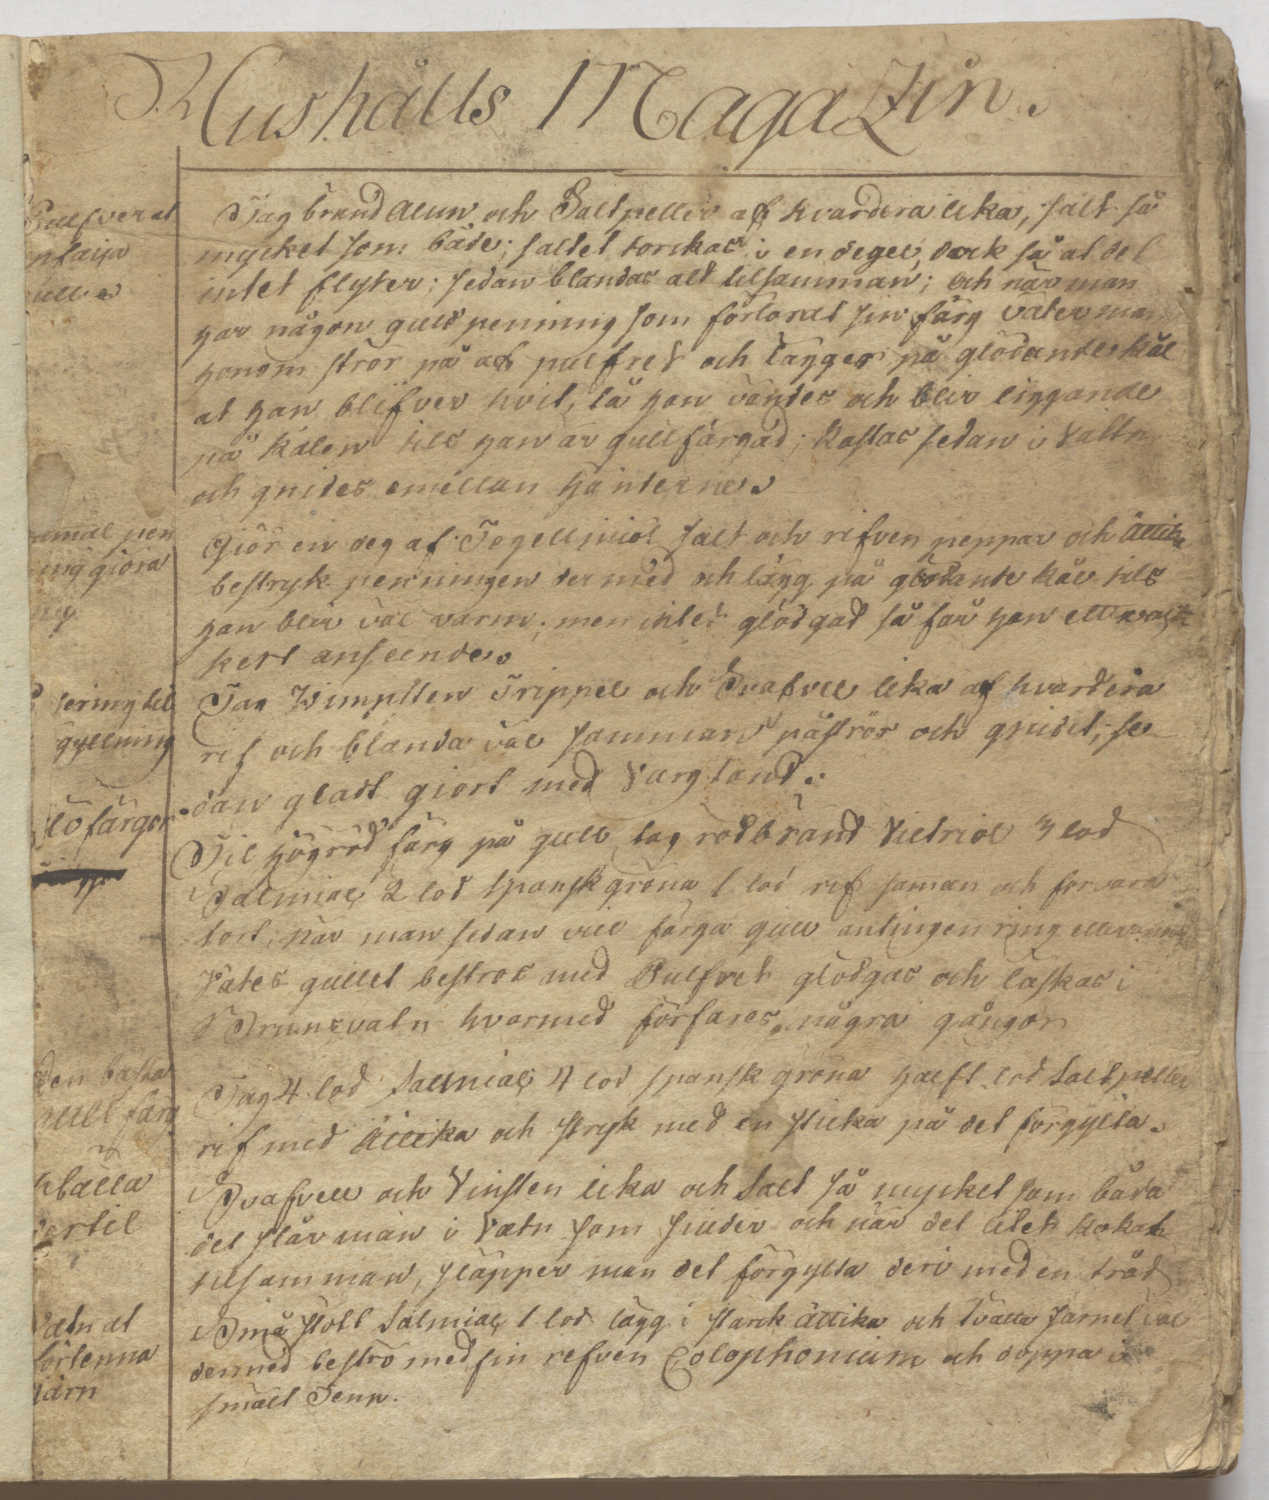 Hushålls MagaZin.
Pulfver at
Tag brand Alun och Saltpetter af hvardera lika, salt så
mycket som både; saltet torckas i en degel, dock så at det
intet flyter; sedan blandas alt tilsamman; och när man
har någon guld penning som förlorat sin färg väter man
honom strör på af pulfret och lägges på glödande kål
at han blifver hvit, då han vändes och blir liggande
på kålen tils han är gullfärgad; kastas sedan i Vattn
och gnides emellan händerne.
gammal pen
ning giöra
ny
Giör en deg af Tegelmiöl salt och rifven peppar och Ättika
bestryk penningen der med och lägg på glödande kål tils
han blir väl varm; men intet glödgad så får han ett
anseende.
lering til
gyllning
Tag Wimpsten Trippel och Svafvel lika af hvardera
rif och blanda väl sammans påströr och gnidet, se
dan glatt giort med Vargtand.
Till högröd färg på gull tag rödbrand Vietriol 3 lod
Salmiac 2 lod Spanskgröna 1 lod rif saman och förvara
tort; när man sedan vill färga gull antingen ring eller
Vätes gullet beströs med Pulfret glödgas och läskas i
Brunsvatn hvarmed förfares några gånger
den bästa
gull färg
Tag 4 lod Salmiac 4 lod spanskgröna halft lod Saltpetter
rif med Ättika och stryk med en sticka på det förgylta.
Svafvel och Vinsten lika och Salt så mycket som båda
dertil
det slår man i Vatn som siuder och när det litet kokat
tilsamman, släpper man det förgylta deri med en tråd
Vatn at
förtenna
järn
Små stött Salmiac 1 lod lägg i starck ättika och tvätta järnet väl
dermed beströ med fin refven Colophonium och doppa i
smält Tenn.